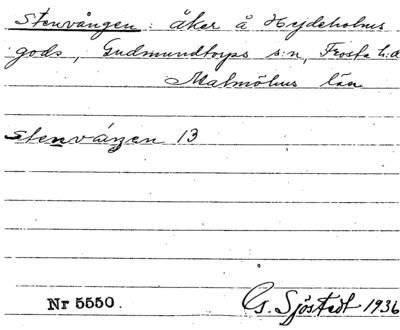 Stenvången: åker å Hejdeholms
gods, Gudmundtorps s:n, Frosta h:d
Malmöhus län
stenvángen 13
Nr 5550.
G. Sjöstedt 1936